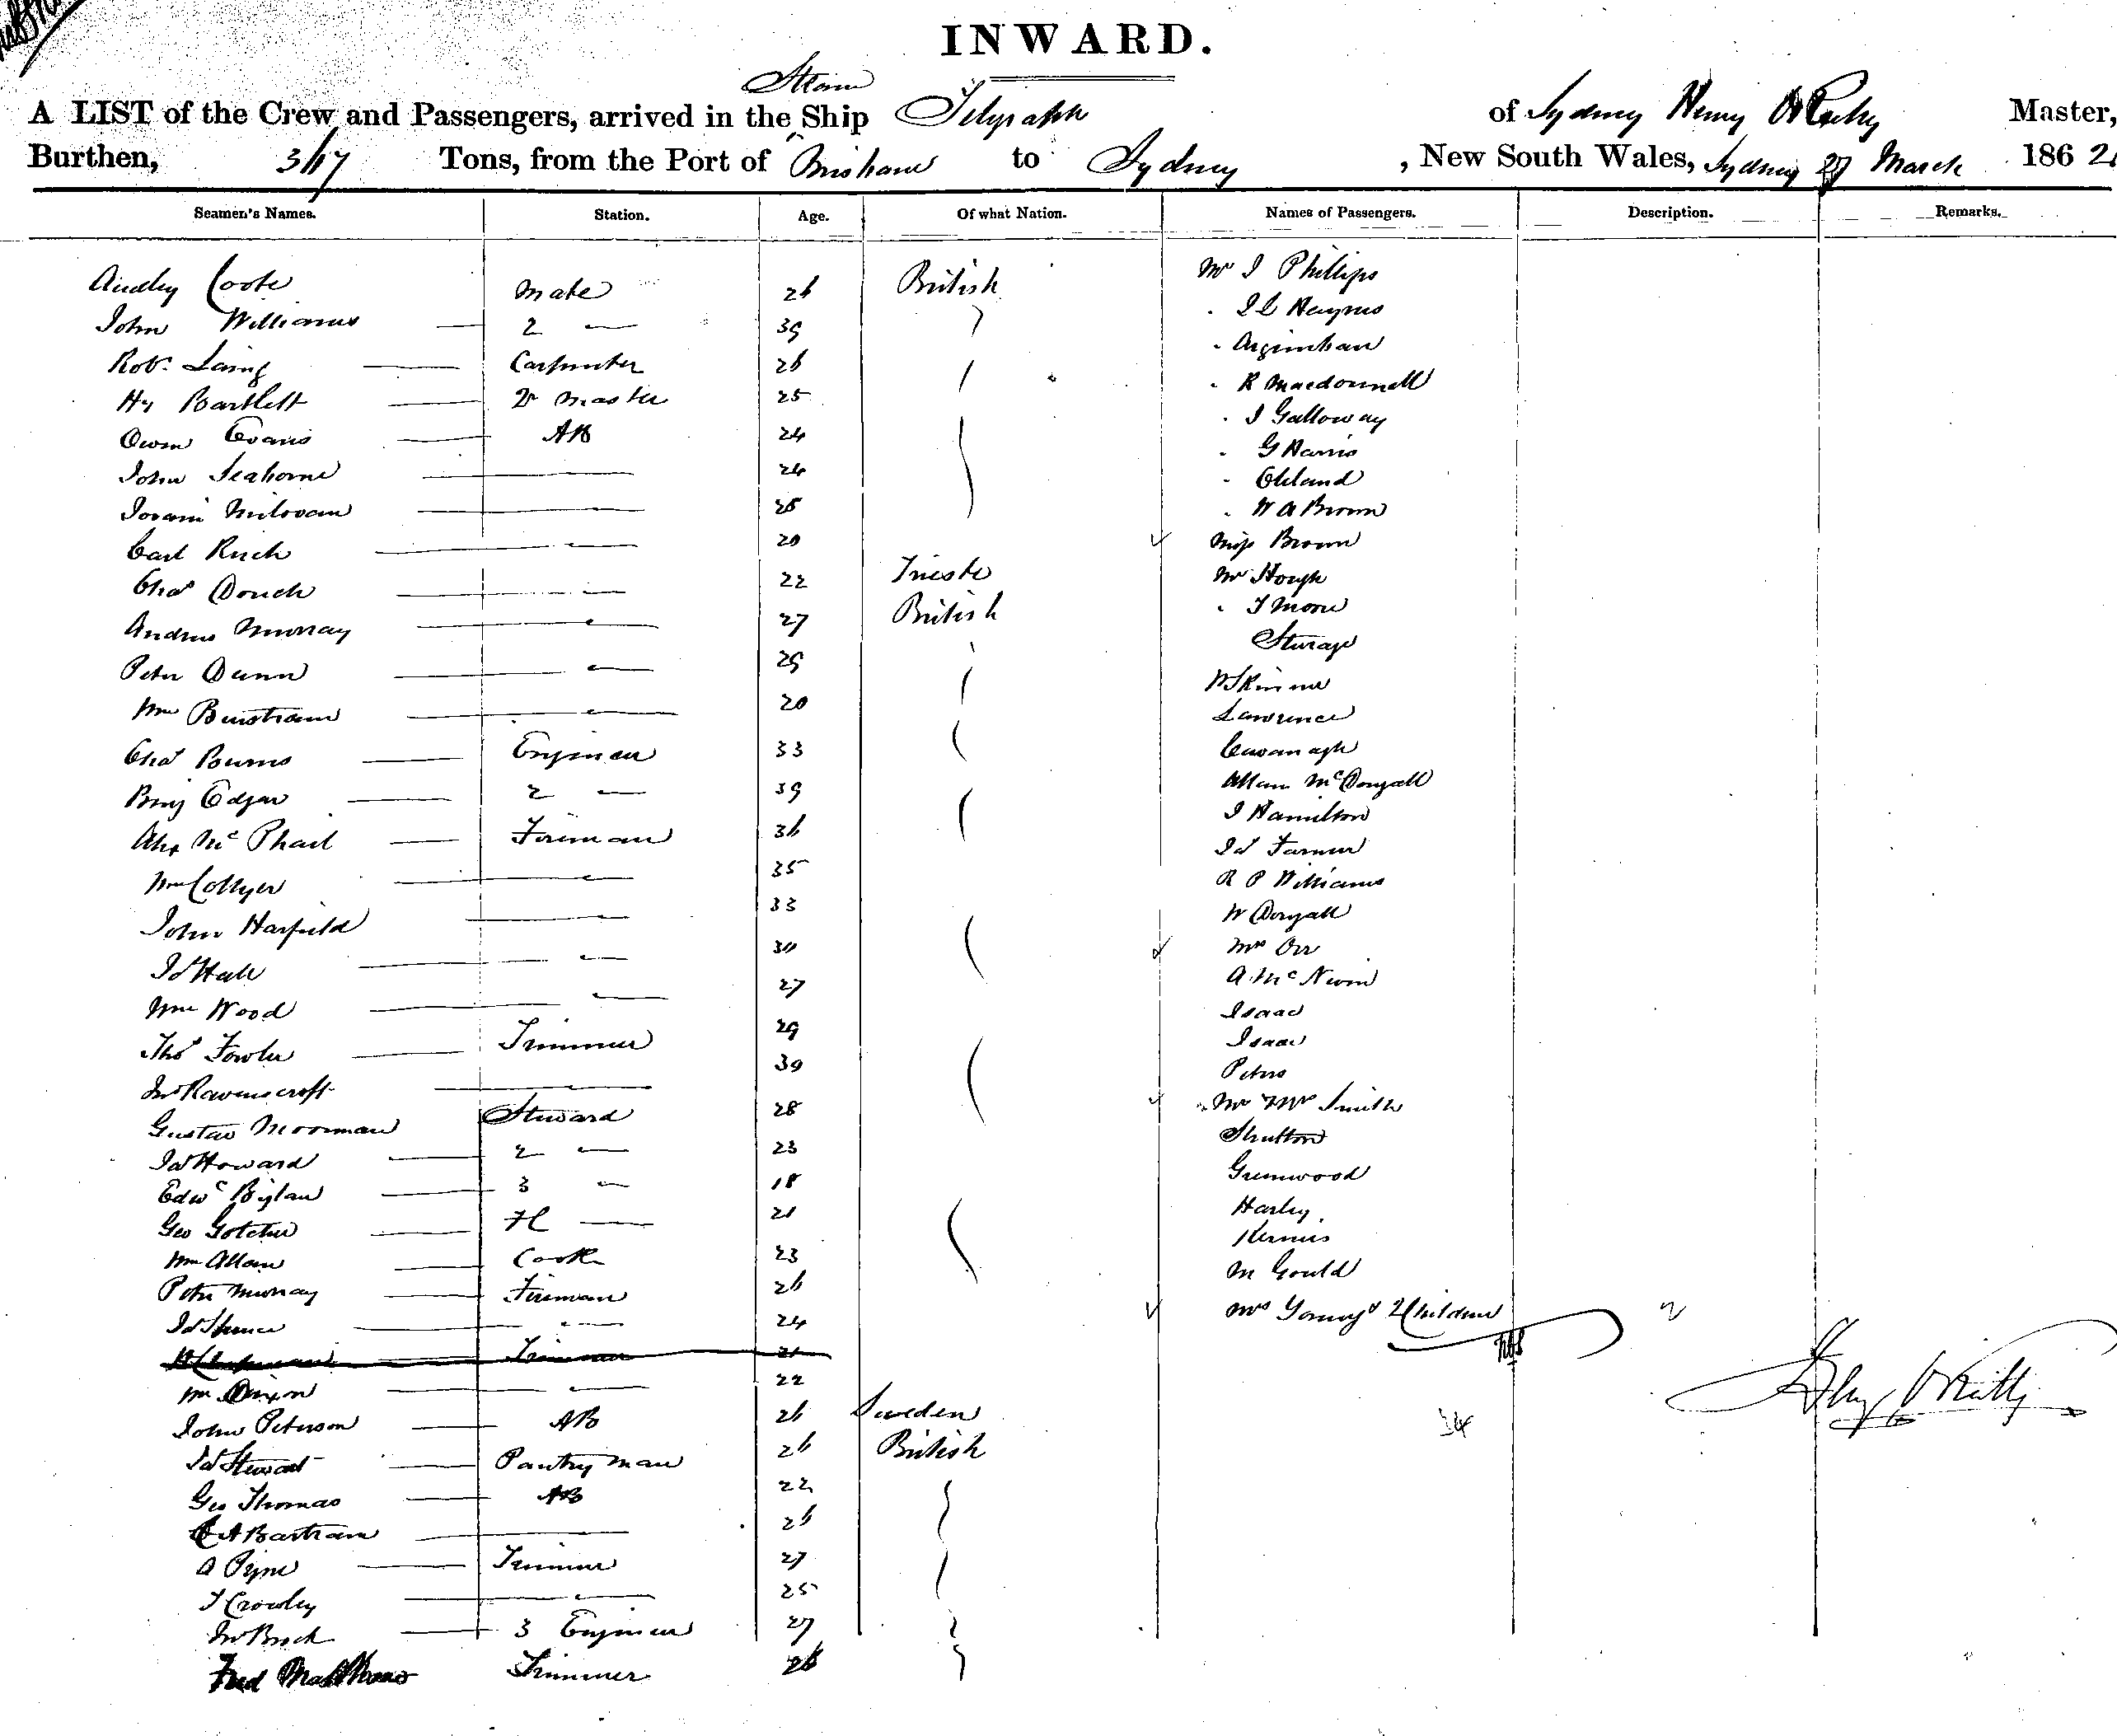 INWARD.
Steam
A LIST of the Crew and Passengers, arrived in the Ship Telegraph of Sydney Henry O'Reilly Master,
Burthen, 3/17 Tons, from the Port of Brisbane to Sydney , New South Wales, Sydney 27 March 1862
Seamen's Names. Station. Age. Of what Nation. Names of Passengers. Description. Remarks.
Audley Coote Mate 26 British Mr J Phillips
John Williams 2 39 Haynes
Robt Laing Carpenter 26
Hy Bartlett Qr Master 25 R Macdonnell
Owen Evans AB 24 J Galloway
John Seaborne 24 G Harris
Milovan 25 Cleland
Carl 20 W A Brown
Miss Brown
Chas Douch 22 Trieste Mr Hough
Andrew Murray 27 British T Moore
Peter Dunn 29 Sturage
Wm 20 W Skinner
Lawrence
Chas Burns Engineer 33 Cavanagh
Benj Edgar 2 39 Allan McDougall
Alex McPhail Fireman 36 J Hamilton
Js Farmer
Wm Collyer 35 R P Williams
John Harfield 33 W Dougall
Mrs Orr
Js Hall 30 A. McNiven
Wm Wood 27 Isaac
Thos Fowler Trimmer 29 Isaac
Jno Ravenscroft 39 Peters
Gustav Moorman Steward 28 Mr & Mrs Smith
Js Howard 2 23 Shutton
Edwd Bylan 3 18 Greenwood
Geo Gotcher 21 Harley
Wm Allan Cook 23
Peter Murray Fireman 26 M Gould
Js Spence 24 Mrs Young & 2 Children
Trimmer 21
Wm Dixon 22
John Peterson AB 26 Sweden 34 Hy O'Reilly
Js Stewart Pantry man 26 British
Geo Thomas AB 22
A Bartram 26
A Pyne Trimmer 27
T Crowley 25
Jno 3 Engineer 27
Fred Matthews Trimmer 26